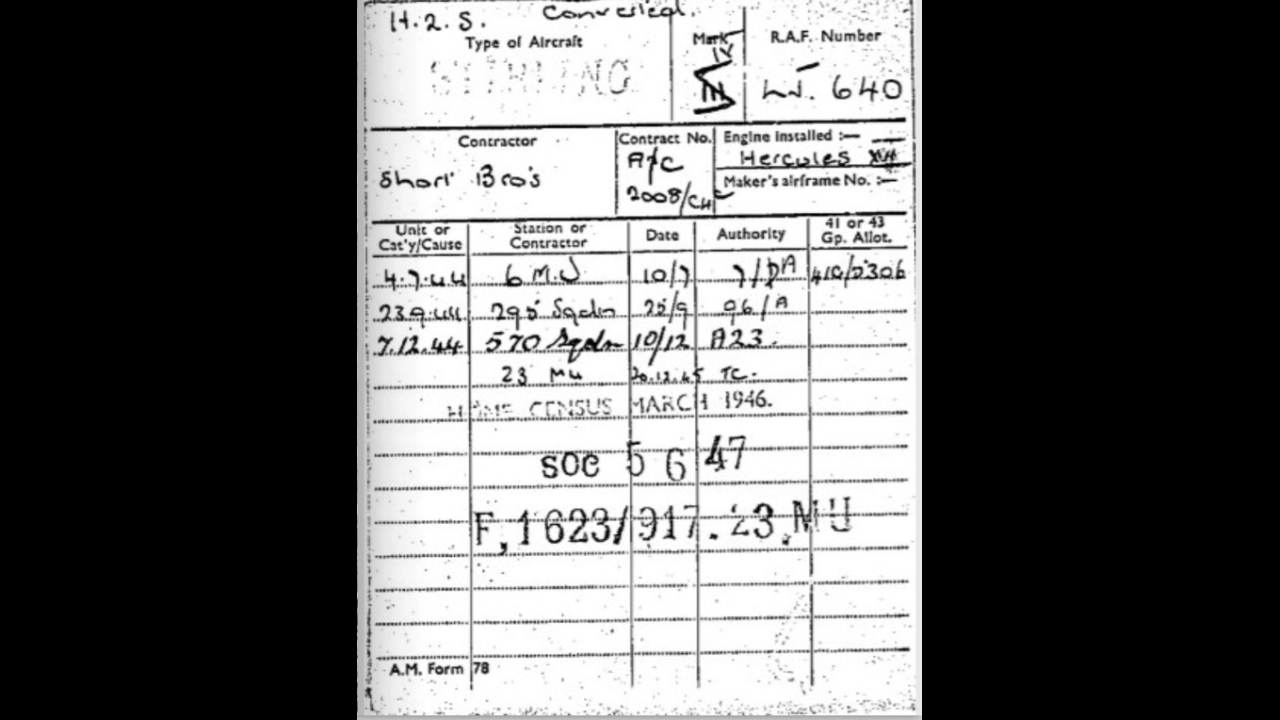 H.2.S. Converted.
Type of Aircraft Mark R.A.F. Number
STIRLING IV III LJ. 640
Contractor Contract No. Engine Installed :—
Short Bro's A/C 2008/CH Hercules
Maker's airframe No. :—
Unit or Cat'y/Cause Station or Contractor Date Authority 41 or 43 Gp. Allot.
4.7.44 6 M.U 10/7 7/DA 41G/2306
23.9.44 295 Sqdn 25/9 96/A
7.12.44 570 Sqdn 10/12 A23.
23 MU 20.12.45 TC.
HOME CENSUS MARCH 1946.
SOC 5 6 47
F,1623/917.23.MU
A.M. Form 78